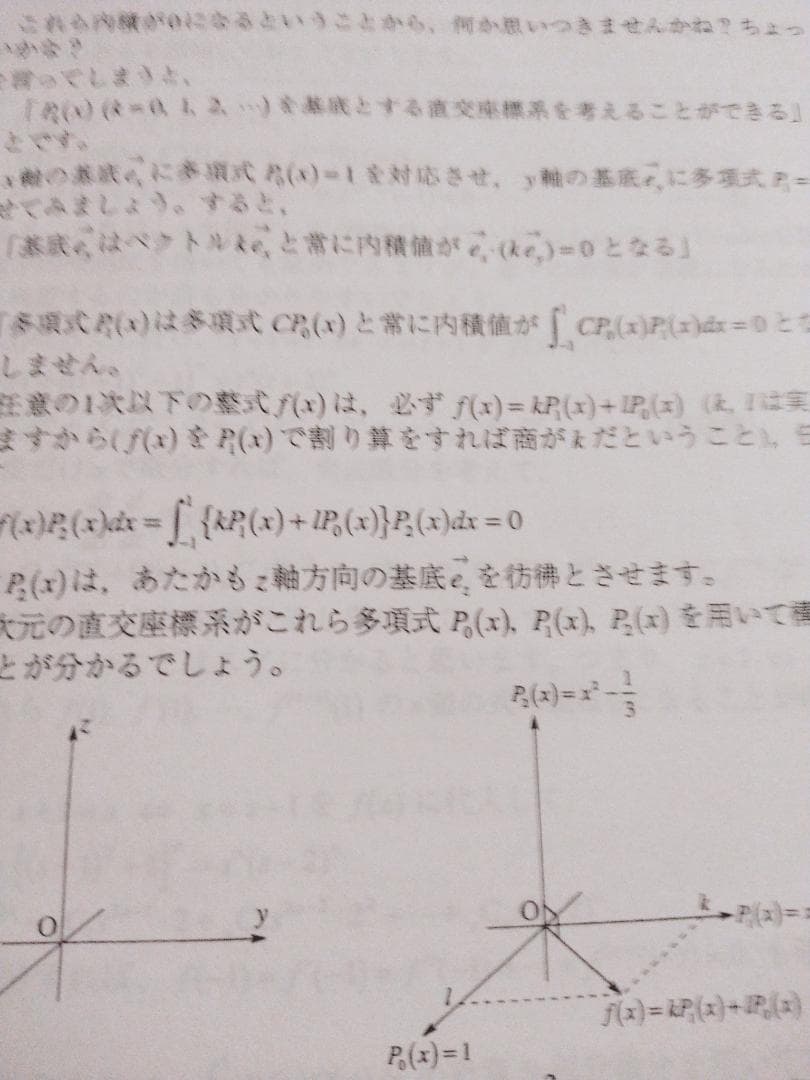 これも内積が0になるということから，何か思いつきませんかね？ちょっ
いかな？
を言ってしまうと，
「P_k(x) (k=0, 1, 2, …) を基底とする直交座標系を考えることができる」
とです。
x軸の基底e_xに多項式 P_0(x)=1 を対応させ，y軸の基底e_yに多項式 P_1=
せてみましょう。すると，
「基底e_xはベクトルke_yと常に内積値が e_x・(ke_y)=0 となる」
「多項式P_1(x)は多項式 CP_0(x) と常に内積値が ∫_{-1}^{1} CP_0(x)P_1(x)dx=0 と
しません。
任意の1次以下の整式 f(x) は，必ず f(x)=kP_1(x)+lP_0(x) (k, l は実
ますから( f(x) を P_1(x) で割り算をすれば商が k だということ)，
f(x)P_2(x)dx=∫_{-1}^{1}{kP_1(x)+lP_0(x)}P_2(x)dx=0
P_2(x)は，あたかも z 軸方向の基底e_zを彷彿とさせます。
次元の直交座標系がこれら多項式 P_0(x), P_1(x), P_2(x) を用いて構
とが分かるでしょう。
P_2(x)=x²-1/3
z
O
y
O
k
P_1(x)=x
l
f(x)=kP_1(x)+lP_0(x)
P_0(x)=1